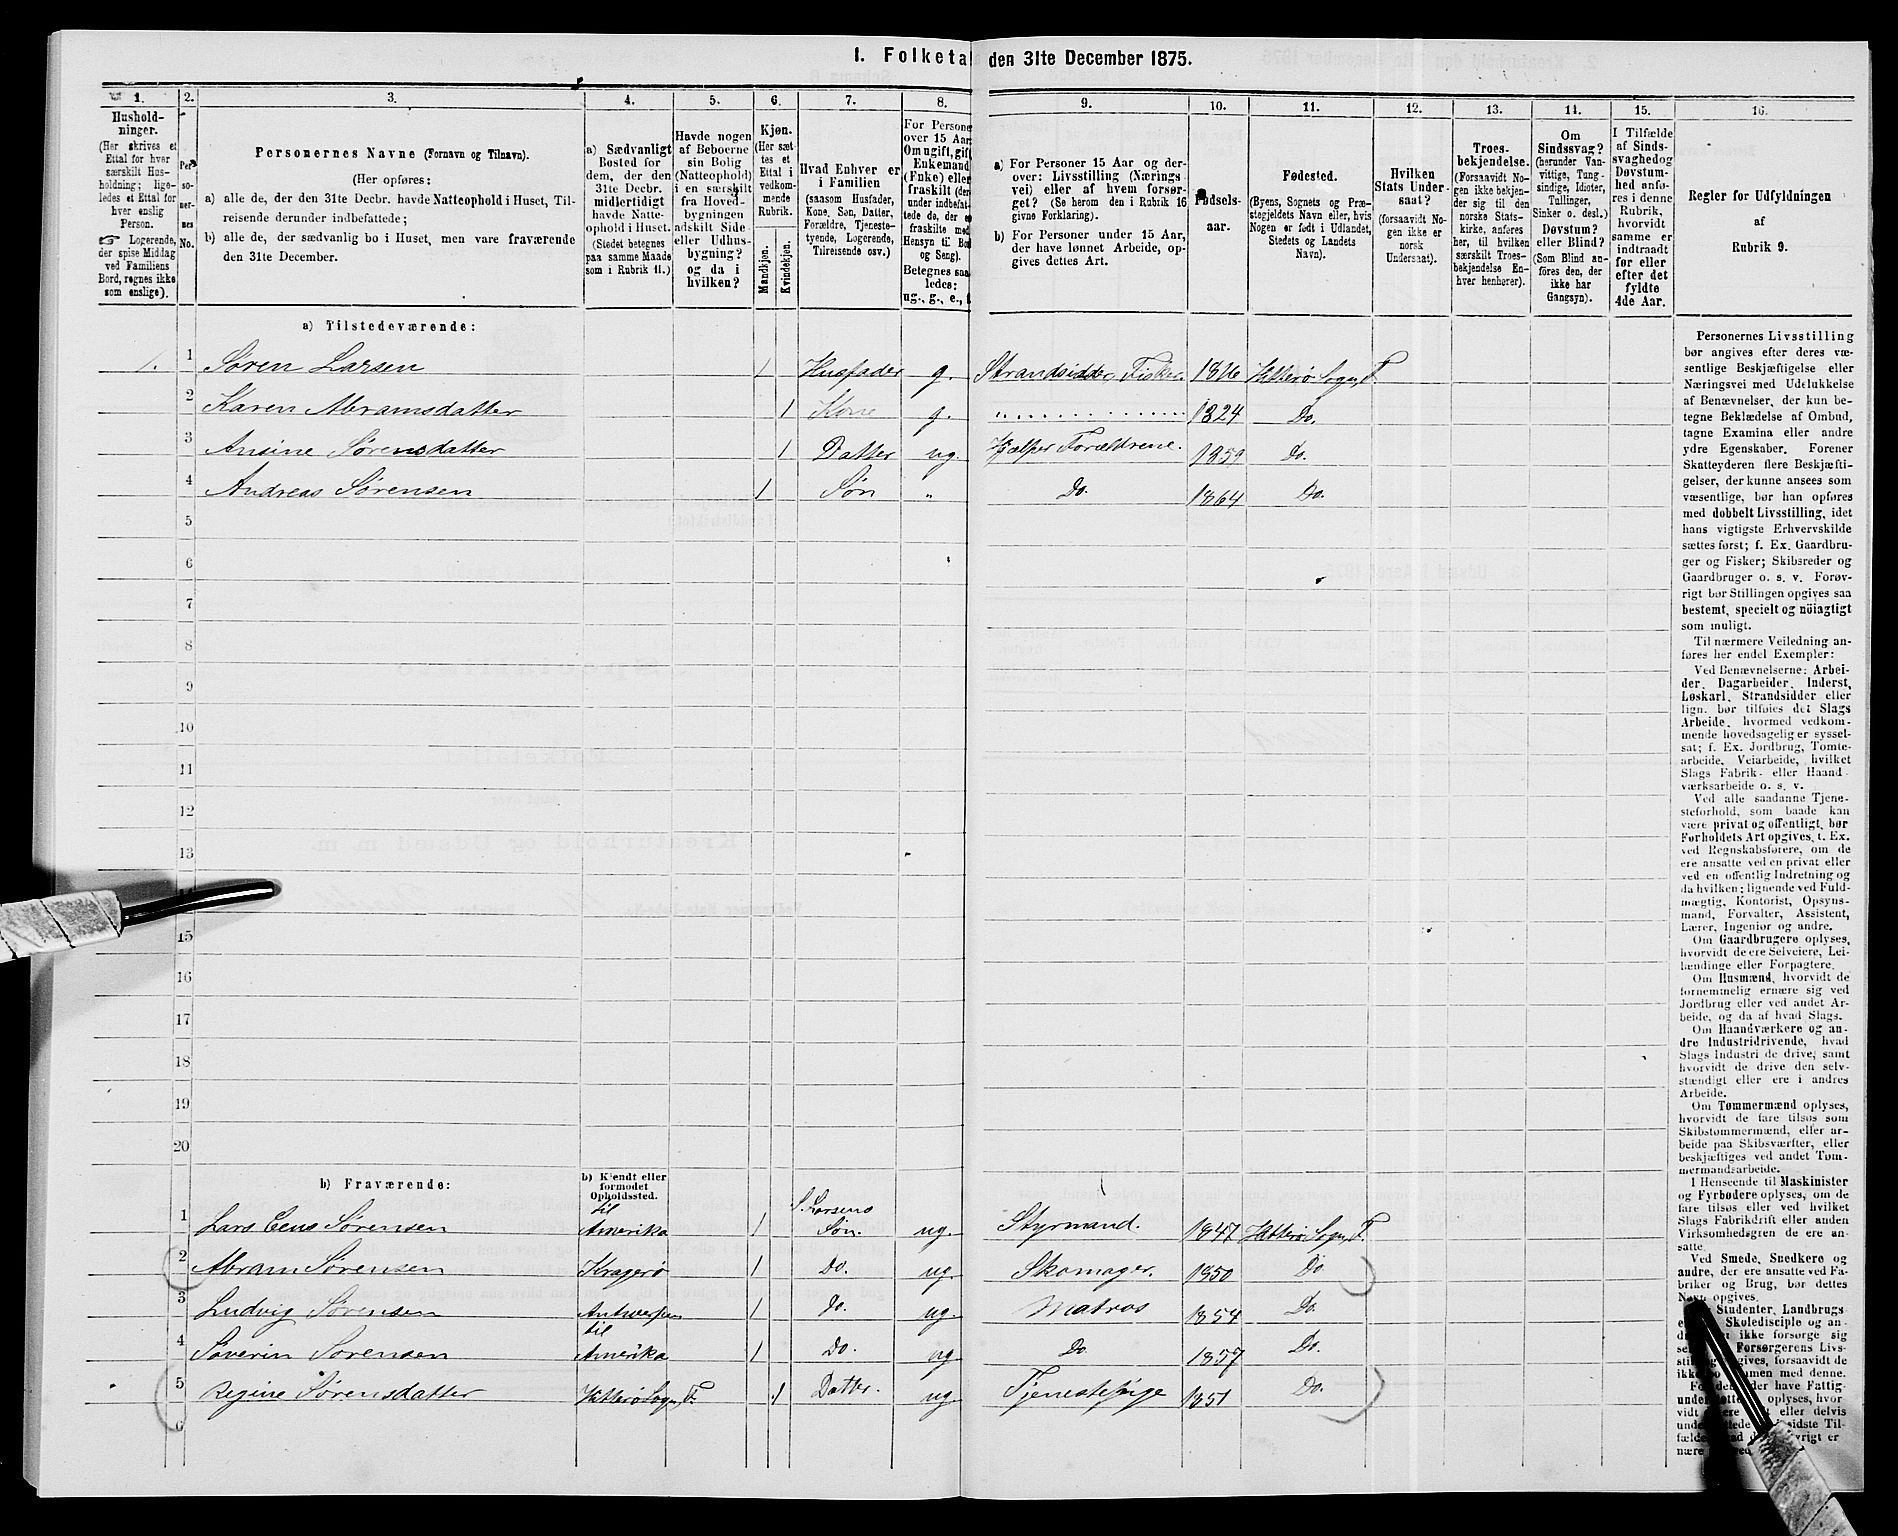 1. Folketal den 31te December 1875.
1.
Hushold-
ninger.
(Her skrives et
Ettal for hver
særskilt Hus-
holdning; lige-
ledes et Ettal for
hver enslig
Person.
☞ Logerende,
der spise Middag
ved Familiens
Bord, regnes ikke
som enslige).
2.
Per-
so-
ner-
nes
No.
3.
Personernes Navne (Fornavn og Tilnavn).
(Her opføres:
a) alle de, der den 31te Decbr. havde Natteophold i Huset, Til-
reisende derunder indbefattede;
b) alle de, der sædvanlig bo i Huset, men vare fraværende
den 31te December.
4.
a) Sædvanligt
Bosted for
dem, der den
31te Decbr.
midlertidigt
havde Natte-
ophold i Huset.
(Stedet betegnes
paa samme Maade
som i Rubrik 11.)
5.
Havde nogen
af Beboerne
sin Bolig
(Natteophold)
i en særskilt
fra Hoved-
bygningen
adskilt Side-
eller Udhus-
bygning?
og da i
hvilken?
6.
Kjøn.
(Her sæt-
tes et
Ettal i
vedkom-
mende
Rubrik.
Mandkjøn.
Kvindekjøn.
7.
Hvad Enhver er
i Familien
(saasom Husfader,
Kone, Søn, Datter,
Forældre, Tjeneste-
tyende, Logerende,
Tilreisende osv.)
8.
For Persone
over 15 Aar
Om ugift, gift
Enkemand
(Enke) eller
fraskilt (der
under indbefat-
tede de, der er
fraskilte med
Hensyn til Bo
og Seng).
Betegnes saa
ledes:
ug., g., e.,
9.
a) For Personer 15 Aar og der-
over: Livsstilling (Nærings
vei) eller af hvem forsør-
get? (Se herom den i Rubrik 16
givne Forklaring).
b) For Personer under 15 Aar,
der have lønnet Arbeide, op-
gives dettes Art.
10.
Fødsels-
aar.
11.
Fødested.
(Byens, Sognets og Præ-
stegjeldets Navn eller, hvis
Nogen er født i Udlandet,
Stedets og Landets
Navn).
12.
Hvilken
Stats Under-
saat?
(forsaavidt No-
gen ikke er
norsk
Undersaat).
13.
Troes-
bekjendelse.
(Forsaavidt No-
gen ikke bekjen-
der sig til den
norske Stats-
kirke, anføres
her, til hvilken
særskilt Troes-
bekjendelse En-
hver henhører).
14.
Om
Sindssvag?
(herunder Van-
vittige, Tung-
sindige, Idioter,
Tullinger,
Sinker o. desl.)
Døvstum?
eller Blind?
(Som Blind an-
føres den, der
ikke har
Gangsyn).
15.
I Tilfælde
af Sinds-
svaghed og
Døvstum-
hed anfø-
res i denne
Rubrik,
hvorvidt
samme er
indtraadt
før eller
efter det
fyldte
4de Aar.
16.
Regler for Udfyldningen
af
Rubrik 9.
a) Tilstedeværende:
1. 1 Søren Larsen 1 Husfader g. Strandsidder, Fisker. 1826 Hitterø Sogn, F.
2 Karen Abramsdatter 1 Kone g. 1824 Do.
3 Ansine Sørensdatter 1 Datter ug. Hjælper Forældrene. 1859 Do.
4 Andreas Sørensen 1 Søn " Do. 1864 Do.
5
6
7
8
9
10
11
12
13
15
16
17
18
19
20
b) Fraværende:
b) Kjendt eller
formodet
Opholdssted.
1 Lars Eeus Sørensen til Amerika 1 S. Larsens Søn. ug. Styrmand. 1847 Hitterø Sogn, F.
2 Abram Sørensen Kragerø 1 Do. ug. Skomager. 1850 Do
3 Ludvig Sørensen Antwerpen 1 Do. ug. Matros 1854 Do.
4 Søverin Sørensen til Amerika 1 Do. ug Do. 1857 Do.
5 Regine Sørensdatter Hitterø Sogn, F. 1 Datter. ug. Tjenestepige 1851 Do.
6
Personernes Livsstilling
bør angives efter deres væ-
sentlige Beskjæftigelse eller
Næringsvei med Udelukkelse
af Benævnelser, der kun be-
tegne Beklædelse af Ombud,
tagne Examina eller andre
ydre Egenskaber. Forener
Skatteyderen flere Beskjæfti-
gelser, der kunne ansees som
væsentlige, bør han opføres
med dobbelt Livsstilling, idet
hans vigtigste Erhvervskilde
sættes først; f. Ex. Gaardbru-
ger og Fisker; Skibsreder og
Gaardbruger o. s. v. Forøv-
rigt bør Stillingen opgives saa
bestemt, specielt og nöiagtigt
som muligt.
Til nærmere Veiledning an-
føres her endel Exempler:
Ved Benævnelserne: Arbei-
der, Dagarbeider, Inderst,
Løskarl, Strandsidder eller
lign. bør tilføies det Slags
Arbeide, hvormed vedkom-
mende hovedsagelig er syssel-
sat; f. Ex. Jordbrug, Tomte-
arbeide, Veiarbeide, hvilket
Slags Fabrik- eller Haand-
værksarbeide o. s. v.
Ved alle saadanne Tjene-
steforhold, som baade kan
være privat og offentligt, bør
Forholdets Art opgives, f. Ex.
ved Regnskabsførere, om de
ere ansatte ved en privat eller
ved en offentlig Indretning og
da hvilken; lignende ved Fuld-
mægtig, Kontorist, Opsyns-
mand, Forvalter, Assistent,
Lærer, Ingeniør og andre.
Om Gaardbrugere oplyses,
hvorvidt de ere Selveiere, Lei-
lændinge eller Forpagtere.
Om Husmænd, hvorvidt de
fornemmelig ernære sig ved
Jordbrug eller ved andet Ar-
beide, og da af hvad Slags.
Om Haandværkere og an-
dre Industridrivende, hvad
Slags Industri de drive, samt
hvorvidt de drive den selv-
stændigt eller ere i andres
Arbeide.
Om Tømmermænd oplyses,
hvorvidt de fare tilsøs som
Skibstømmermænd, eller ar-
beide paa Skibsværfter, eller
beskjæftiges ved andet Tøm-
mermandsarbeide.
I Henseende til Maskinister
og Fyrbødere oplyses, om de
fare tilsøs eller ved hvilket
Slags Fabrikdrift eller anden
Virksomhedsgren de ere an-
satte.
Ved Smede, Snedkere og
andre, der ere ansatte ved Fa-
briker og Brug, bør dettes
Navn opgives.
Studenter, Landbrugs
Skoledisciple og an-
ikke forsørge sig
Forsørgerens Livs-
gives, forsaavidt de
ikke bo sammen med denne.
der have Fattig-
oplyses, hvor-
eller delvis
sidste Til-
øvrigt er